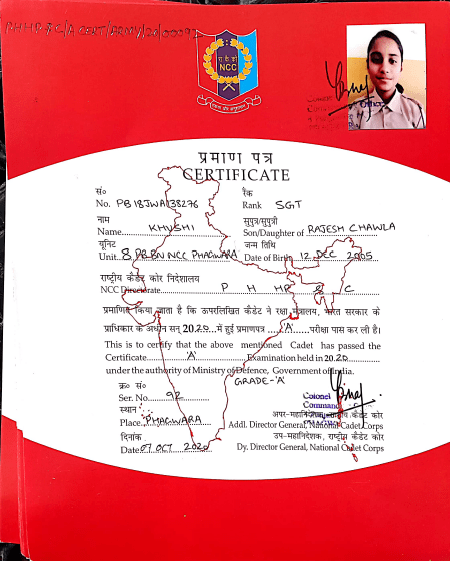 PHHP&C/A CERT/ARMY/20/00092
रा.कै.को
NCC
एकता और अनुशासन
प्रमाण पत्र
CERTIFICATE
सं०
No. PB18JWA138276
रैंक
Rank SGT
नाम
Name KHUSHI
सुपुत्र/सुपुत्री
Son/Daughter of RAJESH CHAWLA
यूनिट
Unit 8 PB BN NCC PHAGWARA
जन्म तिथि
Date of Birth 12 DEC 2005
राष्ट्रीय कैडेट कोर निदेशालय
NCC Directorate P H HP & C
प्रमाणित किया जाता है कि ऊपरलिखित कैडेट ने रक्षा मंत्रालय, भारत सरकार के
प्राधिकार के अधीन सन् 2020 में हुई प्रमाणपत्र 'A' परीक्षा पास कर ली है।
This is to certify that the above mentioned Cadet has passed the
Certificate 'A' Examination held in 2020
under the authority of Ministry of Defence, Government of India.
GRADE-'A'
क्र० सं०
Ser. No. 92
Colonel
Command
स्थान
Place PHAGWARA
अपर-महानिदेशक, राष्ट्रीय कैडेट कोर
Addl. Director General, National Cadet Corps
दिनांक
Date 07 OCT 2020
उप-महानिदेशक, राष्ट्रीय कैडेट कोर
Dy. Director General, National Cadet Corps